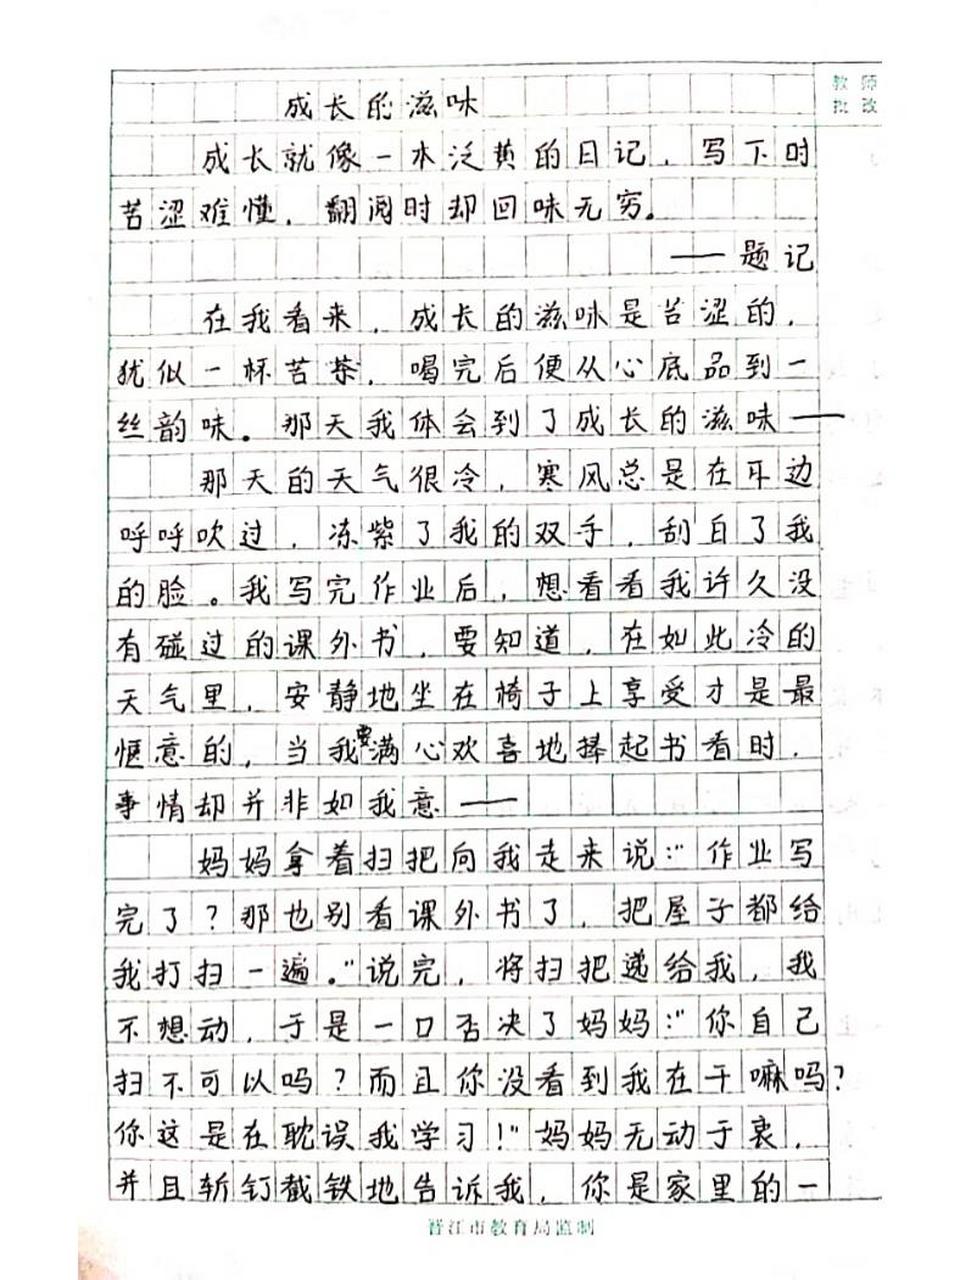 教师
批改
成长的滋味
成长就像一本泛黄的日记，写下时
苦涩难懂，翻阅时却回味无穷。
——题记
在我看来，成长的滋味是苦涩的，
犹似一杯苦茶，喝完后便从心底品到一
丝韵味。那天我体会到了成长的滋味——
那天的天气很冷，寒风总是在耳边
呼呼吹过，冻紫了我的双手，刮白了我
的脸。我写完作业后，想看看我许久没
有碰过的课外书，要知道，在如此冷的
天气里，安静地坐在椅子上享受才是最
惬意的，当我要满心欢喜地捧起书看时，
事情却并非如我意——
妈妈拿着扫把向我走来说：“作业写
完了？那也别看课外书了，把屋子都给
我打扫一遍。”说完，将扫把递给我，我
不想动，于是一口否决了妈妈：“你自己
扫不可以吗？而且你没看到我在干嘛吗？
你这是在耽误我学习！”妈妈无动于衷，
并且斩钉截铁地告诉我，你是家里的一
晋江市教育局监制